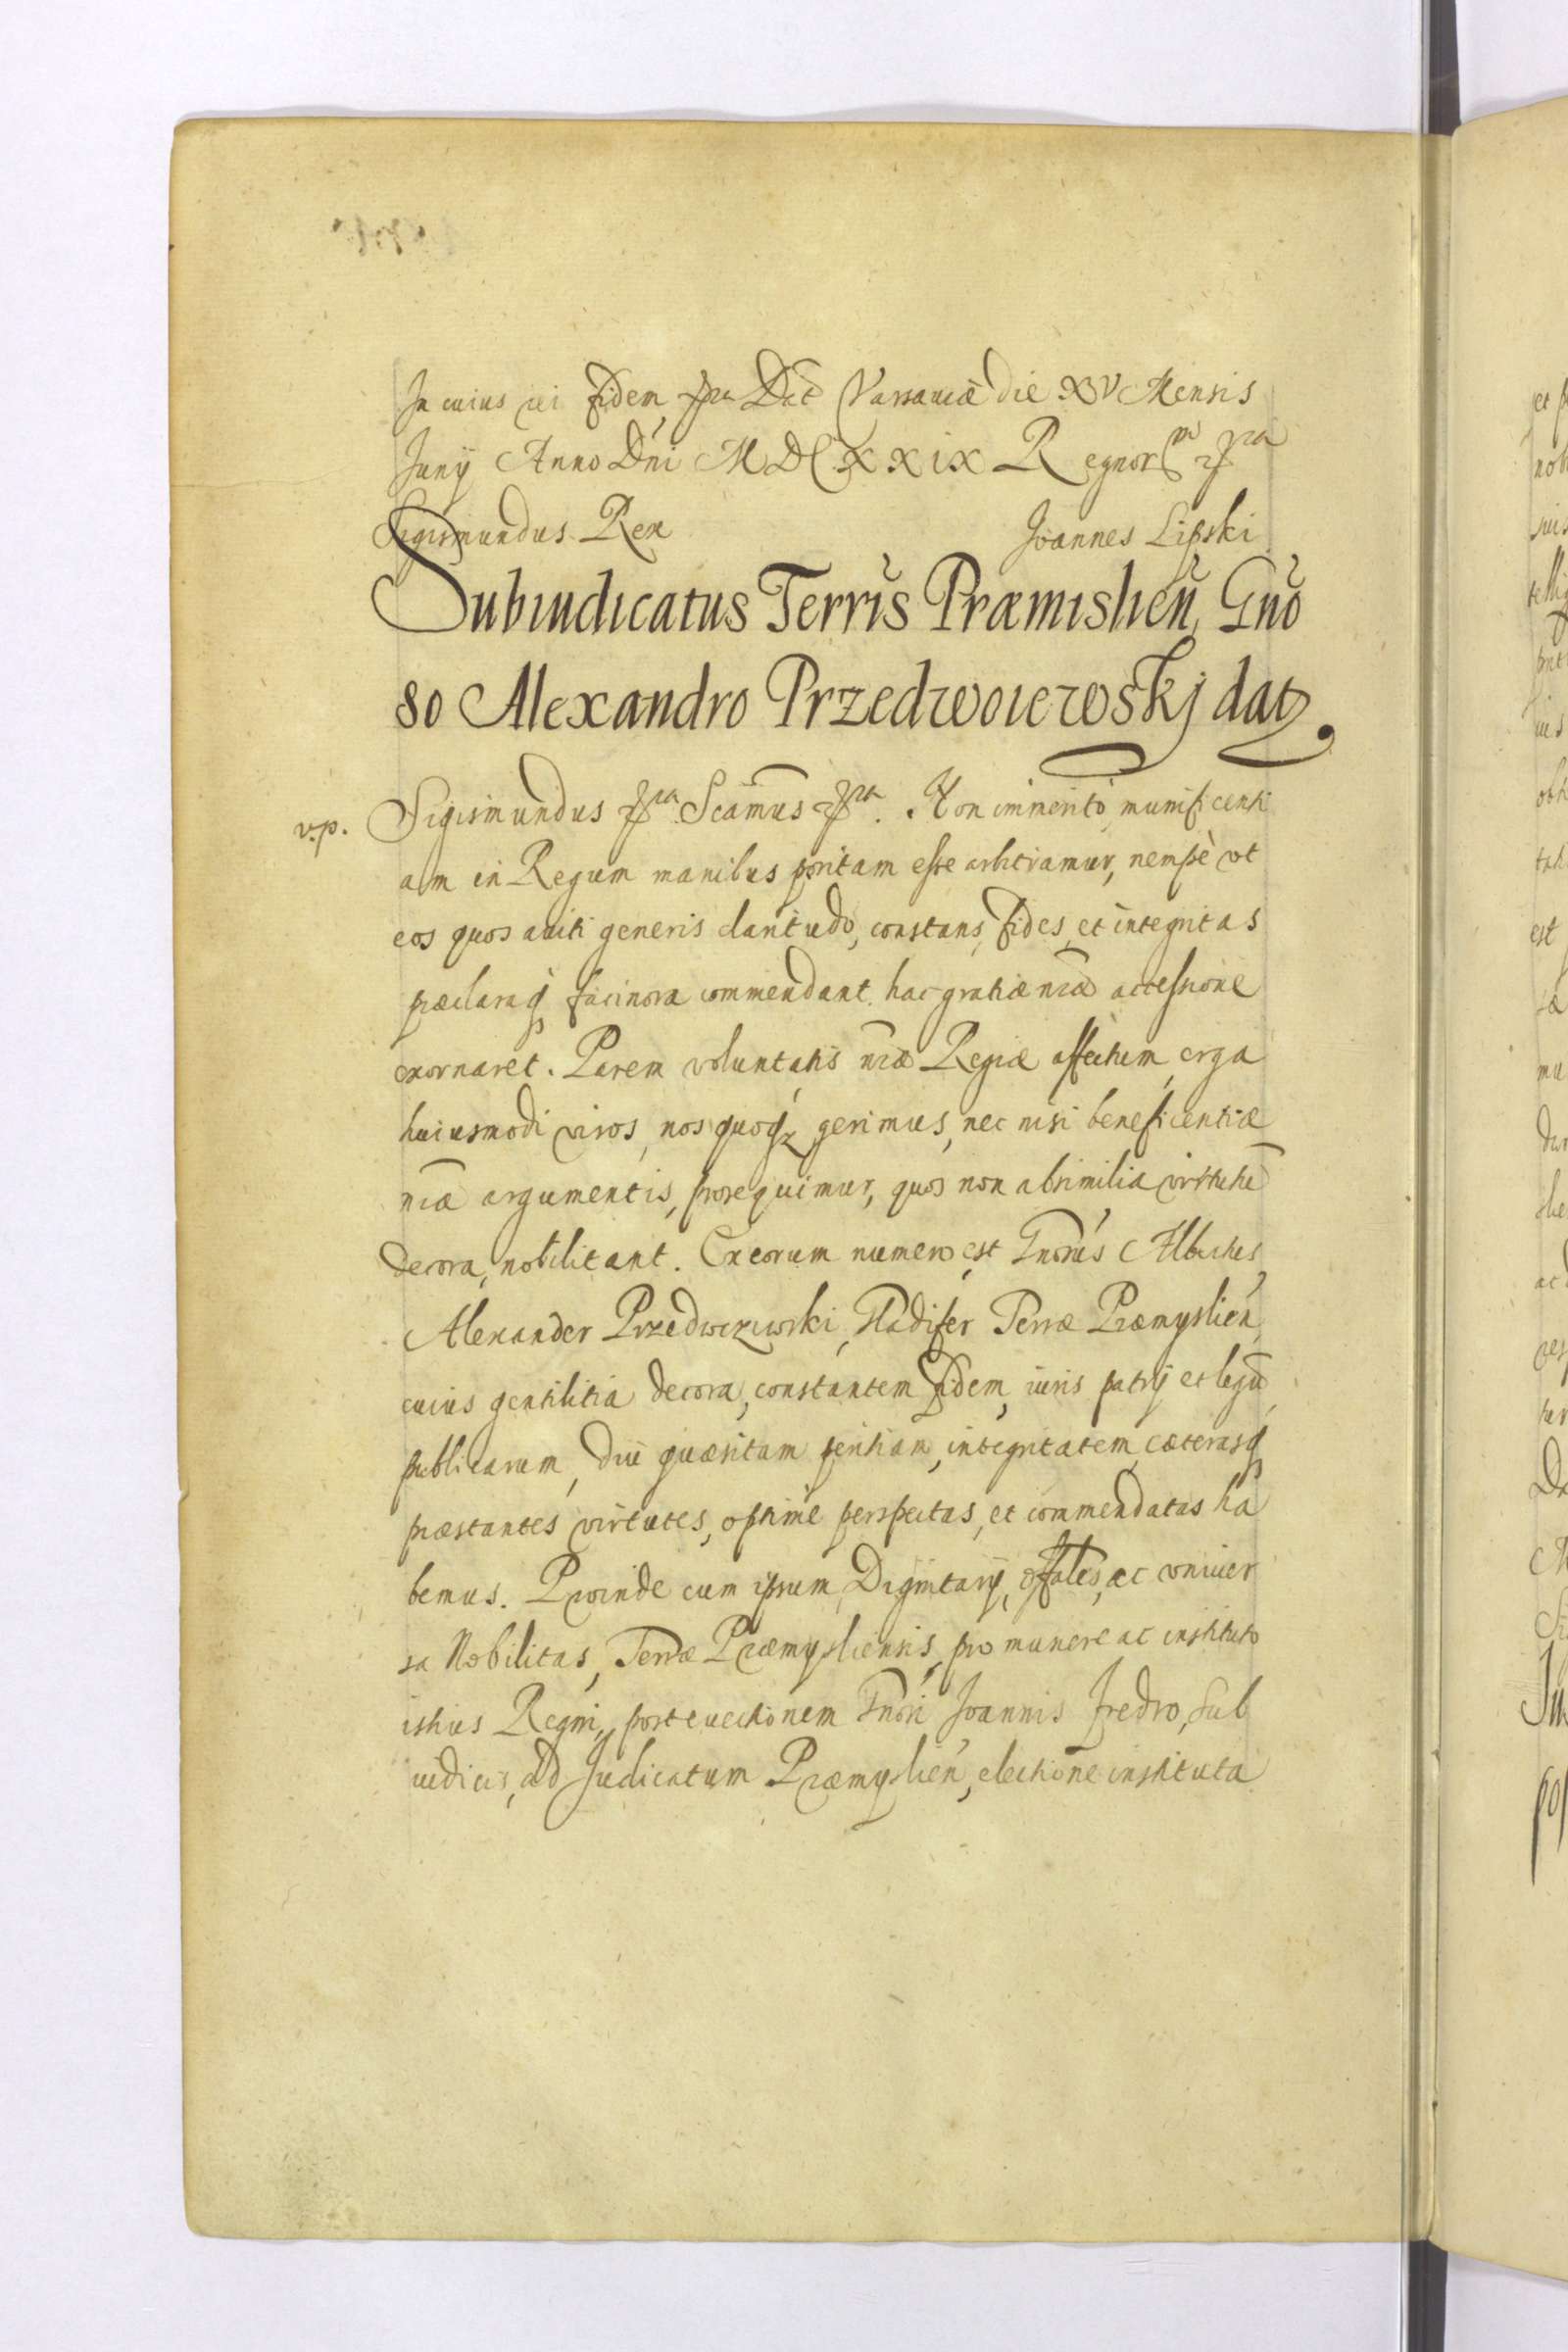 In cuius rei fidem &ra Dat Varsauiæ die XV Mensis
Junÿ Anno Dni MDCXXIX Regnor &ra
Sigismundus Rex Joannes Lipski
Subiudicatus Terris Præmislien, Gno
so Alexandro Przedwoiewskj dat
v.p. Sigismundus &ra Scamus &ra. Non immeritò munificenti
am in Regum manibus positam esse arbitramur, nempè vt
eos quos auiti generis claritudo, constans fides, et integritas
præclaraq facinora commendant, hac gratiæ nræ accessione
exornaret. Parem voluntatis nræ Regiæ affectum, erga
huiusmodi viros, nos quoqz gerimus, nec nisi beneficentiæ
nræ argumentis, prosequimur, quos non absimilia virtutu
decora, nobilitant. Ex eorum numero est Gnosus Albertus
Alexander Przedwoiewski, Gladifer Terræ Præmyslien,
cuius gentilitia decora, constantem fidem, iuris patrÿ et legu
publicarum, diu quæsitam peritiam, integritatem, cæterasq
præstantes virtutes, optime perspectas, et commendatas ha
bemus. Proinde cum ipsum Dignitarÿ, offales, ac vniuer
sa Nobilitas, Terræ Præmysliensis, pro munere ac instituto
istius Regni, post euectionem Gnosi Joannis Fredro, Sub
iudicis, ad Judicatum Præmyslien, electione instituta